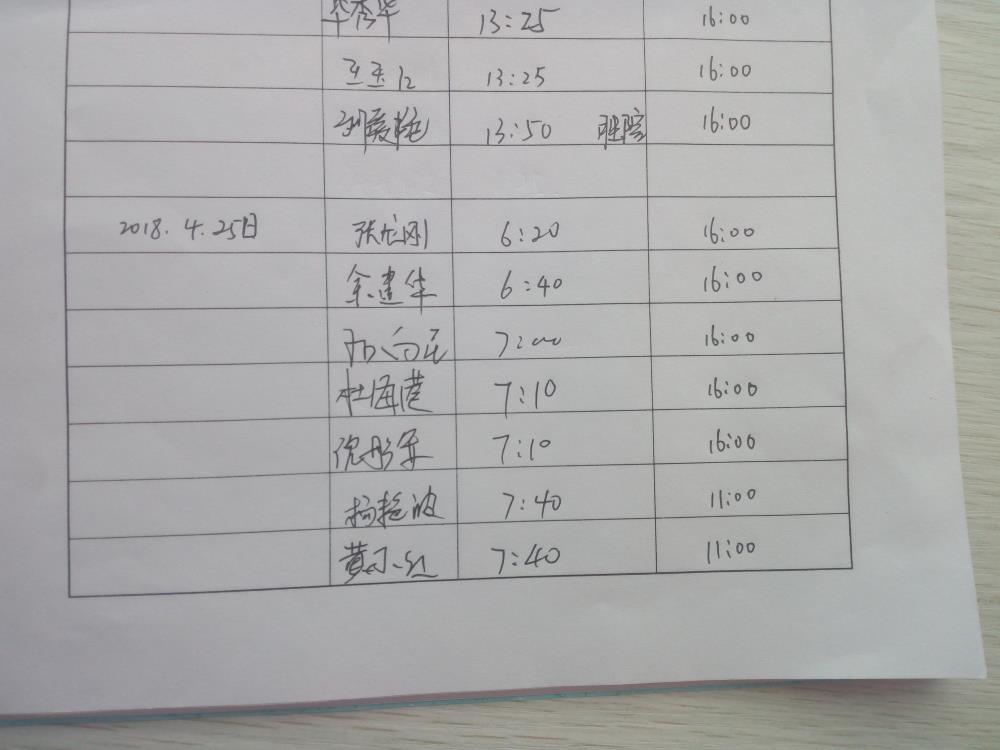 华秀华 13:25 16:00
王玉 13:25 16:00
刘爱艳 13:50 16:00
2018.4.25日 张龙刚 6:20 16:00
余建华 6:40 16:00
7:00 16:00
杜海港 7:10 16:00
倪彤军 7:10 16:00
杨艳波 7:40 11:00
黄小红 7:40 11:00